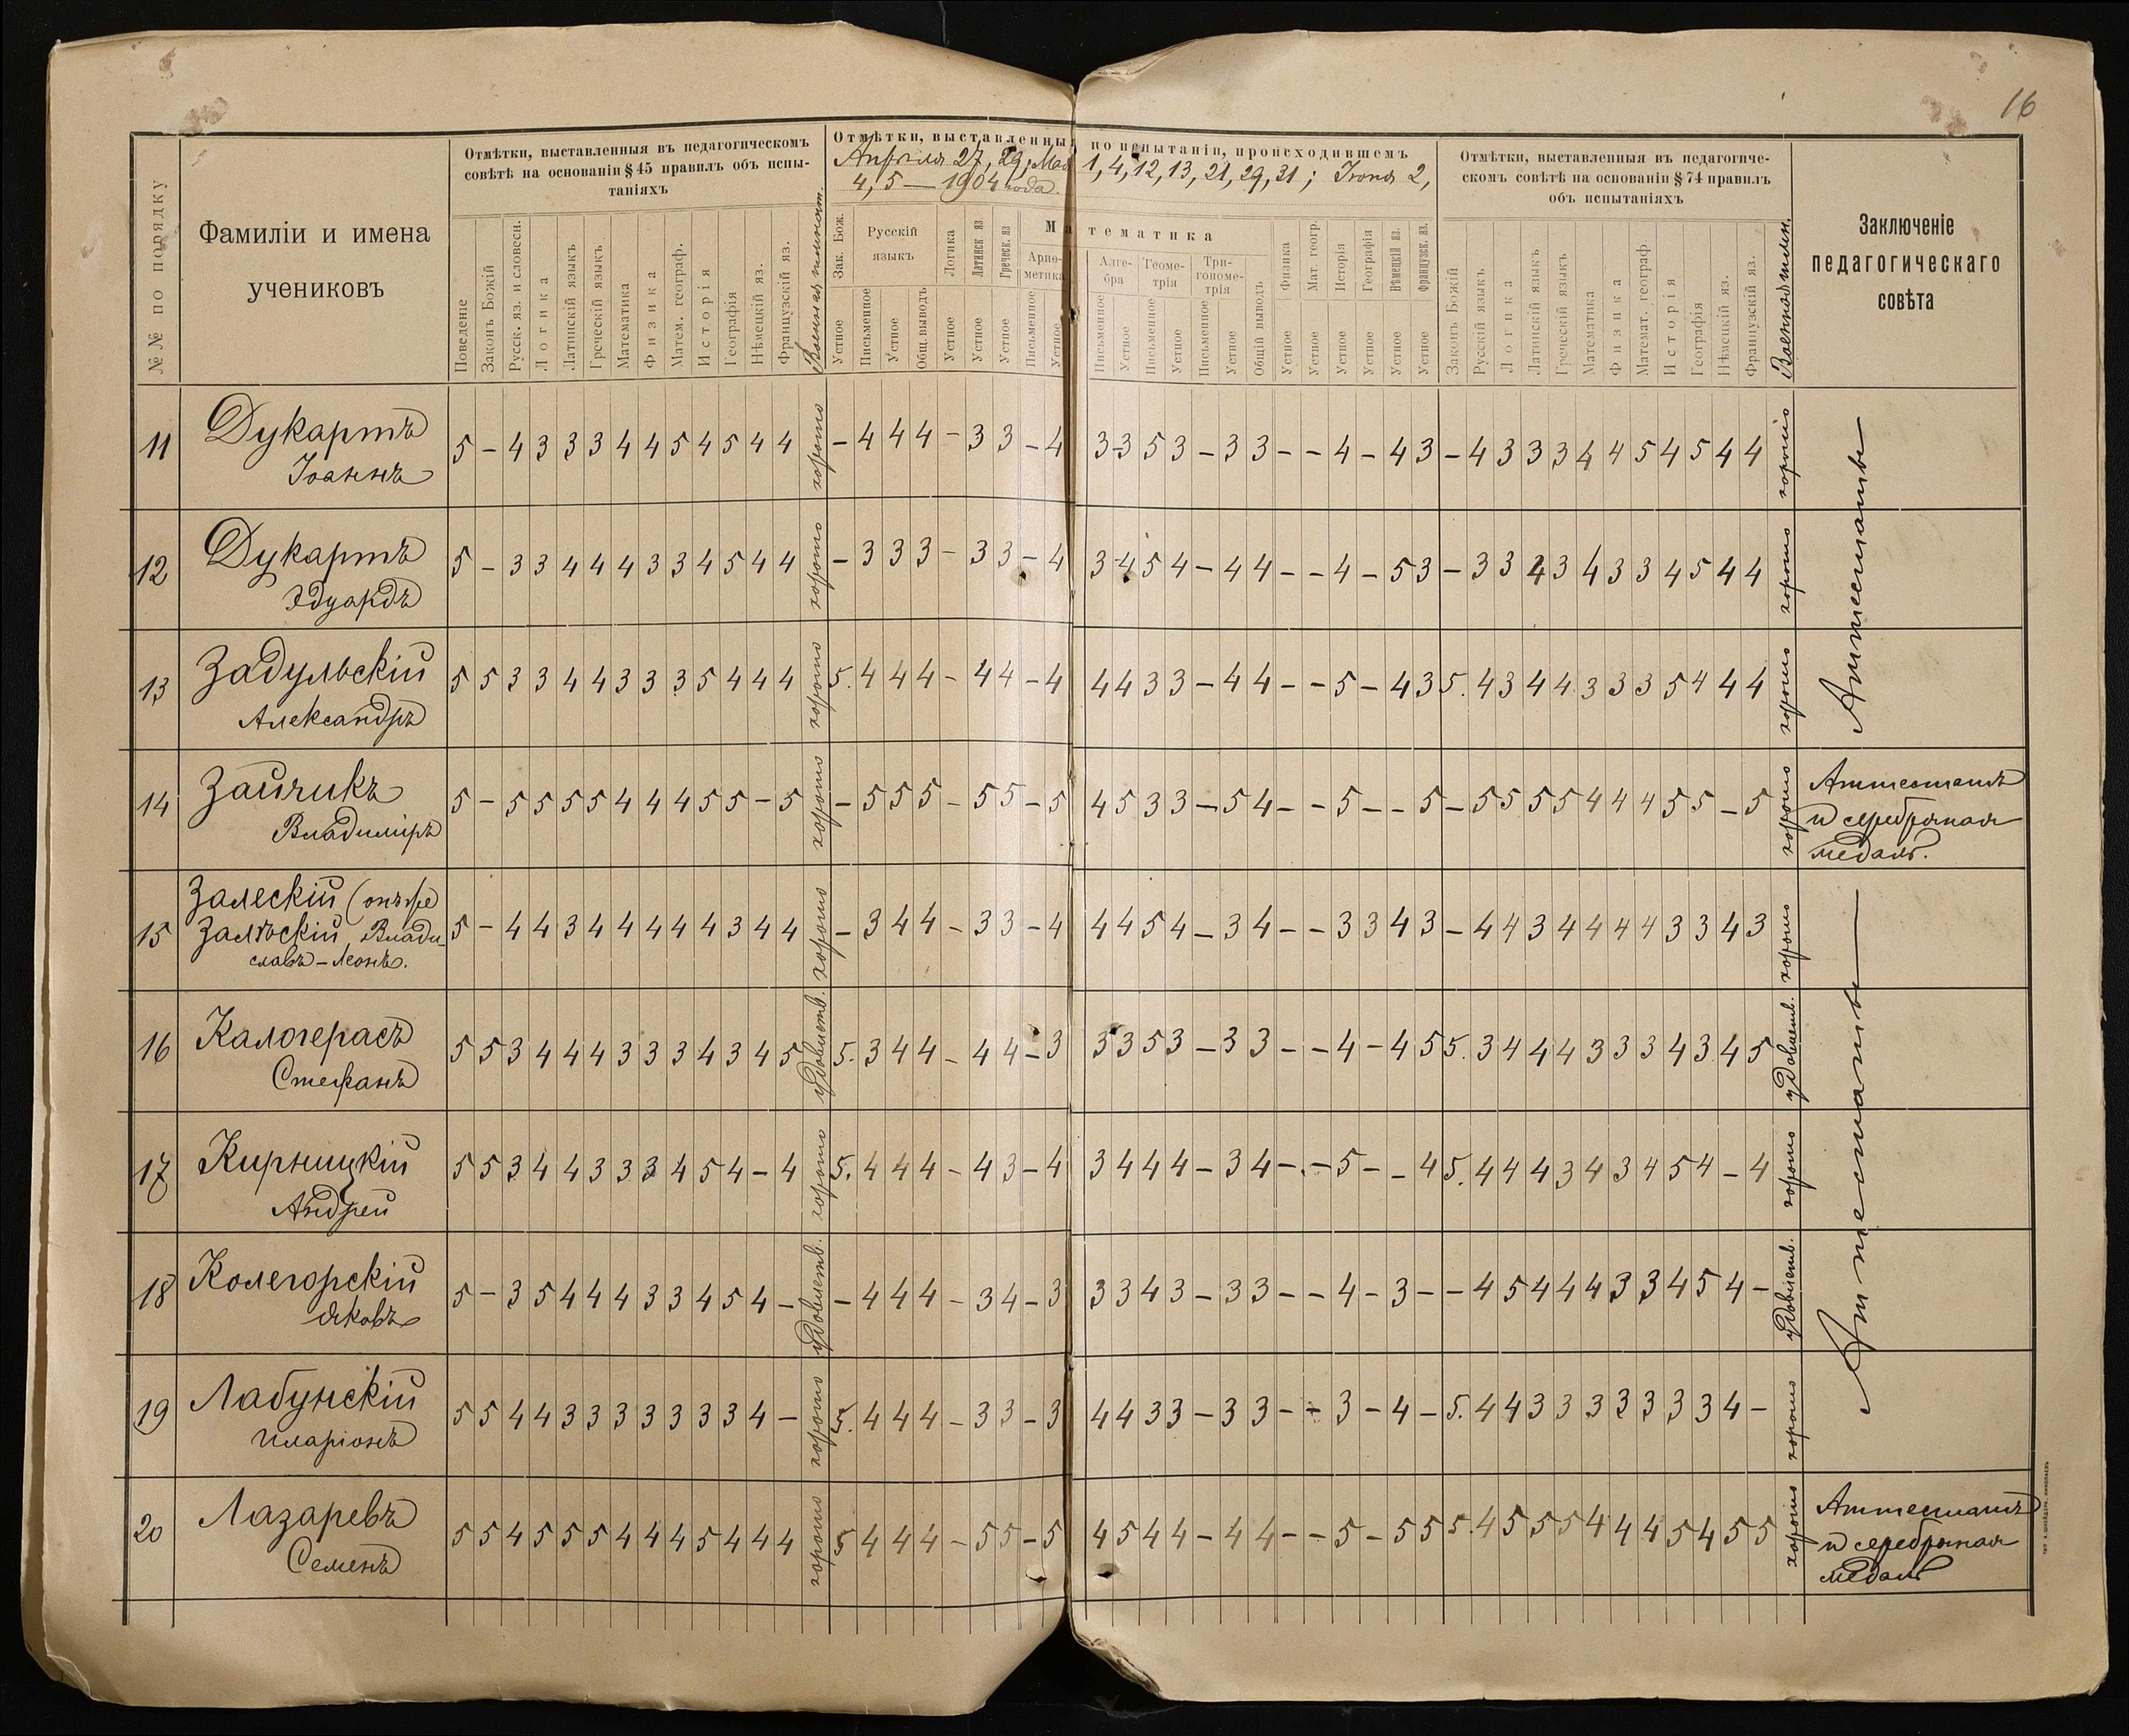 16
№№ по порядку
Фамиліи и имена
учениковъ
Отмѣтки, выставленныя въ педагогическомъ
совѣтѣ на основаніи § 45 правилъ объ испы-
таніяхъ
Отмѣтки, выставленныя по испытаніи, происходившемъ
Апрѣля 27, 29, Мая 1, 4, 12, 13, 21, 29, 31; Іюня 2,
4, 5 — 1904 года.
Отмѣтки, выставленныя въ педагогиче-
скомъ совѣтѣ на основаніи § 74 правилъ
объ испытаніяхъ
Заключеніе
педагогическаго
совѣта
Поведеніе
Законъ Божій
Русск. яз. и словесн.
Логика
Латинскій языкъ
Греческій языкъ
Математика
Физика
Матем. географ.
Исторія
Географія
Нѣмецкій яз.
Французскій яз.
Зак. Бож.
Русскій
языкъ
Логика
Латинск яз.
Греческ. яз
Математика
Арие-
метика
Алге-
бра
Геоме-
трія
Три-
гономе-
трія
Общій выводъ
Физика
Мат. геогр.
Исторія
Географія
Нѣмецкій яз.
Французск. яз.
Устное
Письменное
Устное
Общ. выводъ
Устное
Устное
Устное
Письменное
Устное
Письменное
Устное
Письменное
Устное
Письменное
Устное
Устное
Устное
Устное
Устное
Устное
Устное
Законъ Божій
Русскій языкъ
Логика
Латинскій языкъ
Греческій языкъ
Математика
Физика
Математ. географ
Исторія
Географія
Нѣмецкій яз.
Французскій яз.
11 Дукартъ 5 – 4 3 3 3 4 4 5 4 5 4 4 хорошо – 4 4 4 – 3 3 – 4 3 3 5 3 – 3 3 – – 4 – 4 3 – 4 3 3 3 4 4 5 4 5 4 4 хорошо
Іоаннъ
12 Дукартъ 5 – 3 3 4 4 4 3 3 4 5 4 4 хорошо – 3 3 3 – 3 3 – 4 3 4 5 4 – 4 4 – – 4 – 5 3 – 3 3 4 3 4 3 3 4 5 4 4 хорошо
Эдуардъ
13 Задульскій 5 5 3 3 4 4 3 3 3 5 4 4 4 хорошо 5. 4 4 4 – 4 4 – 4 4 4 3 3 – 4 4 – – 5 – 4 3 5. 4 3 4 4 3 3 3 5 4 4 4 хорошо
Александръ
Аттестаты
14 Зайчикъ 5 – 5 5 5 5 4 4 4 5 5 – 5 хорошо – 5 5 5 – 5 5 – 5 4 5 3 3 – 5 4 – – 5 – – 5 – 5 5 5 5 4 4 4 5 5 – 5 хорошо
Владиміръ
Аттестатъ
и серебряная
медаль.
15 Залескій (онъ же
Залѣскій, Влади-
славъ-Леонъ. 5 – 4 4 3 4 4 4 4 4 3 4 4 хорошо – 3 4 4 – 3 3 – 4 4 4 5 4 – 3 4 – – 3 3 4 3 – 4 4 3 4 4 4 4 3 3 4 3 хорошо
16 Калогерасъ 5 5 3 4 4 4 3 3 3 4 3 4 5 удовлетв. 5. 3 4 4 – 4 4 – 3 3 3 5 3 – 3 3 – – 4 – 4 5 5. 3 4 4 4 3 3 3 4 3 4 5 удовлетв.
Стефанъ
17 Кирницкій 5 5 3 4 4 3 3 3 4 5 4 – 4 хорошо 5. 4 4 4 – 4 3 – 4 3 4 4 4 – 3 4 – – 5 – – 4 5. 4 4 4 3 4 3 4 5 4 – 4 хорошо
Андрей
18 Колегорскій 5 – 3 5 4 4 4 3 3 4 5 4 – удовлетв. – 4 4 4 – 3 4 – 3 3 3 4 3 – 3 3 – – 4 – 3 – – 4 5 4 4 4 3 3 4 5 4 – удовлетв.
Яковъ
19 Лабунскій 5 5 4 4 3 3 3 3 3 3 3 4 – хорошо 5. 4 4 4 – 3 3 – 3 4 4 3 3 – 3 3 – – 3 – 4 – 5. 4 4 3 3 3 3 3 3 3 4 – хорошо
Иларіонъ
Аттестаты
20 Лазаревъ 5 5 4 5 5 5 4 4 4 5 4 4 4 хорошо 5 4 4 4 – 5 5 – 5 4 5 4 4 – 4 4 – – 5 – 5 5 5. 4 5 5 5 4 4 4 5 4 5 5 хорошо
Семенъ
Аттестатъ
и серебряная
медаль